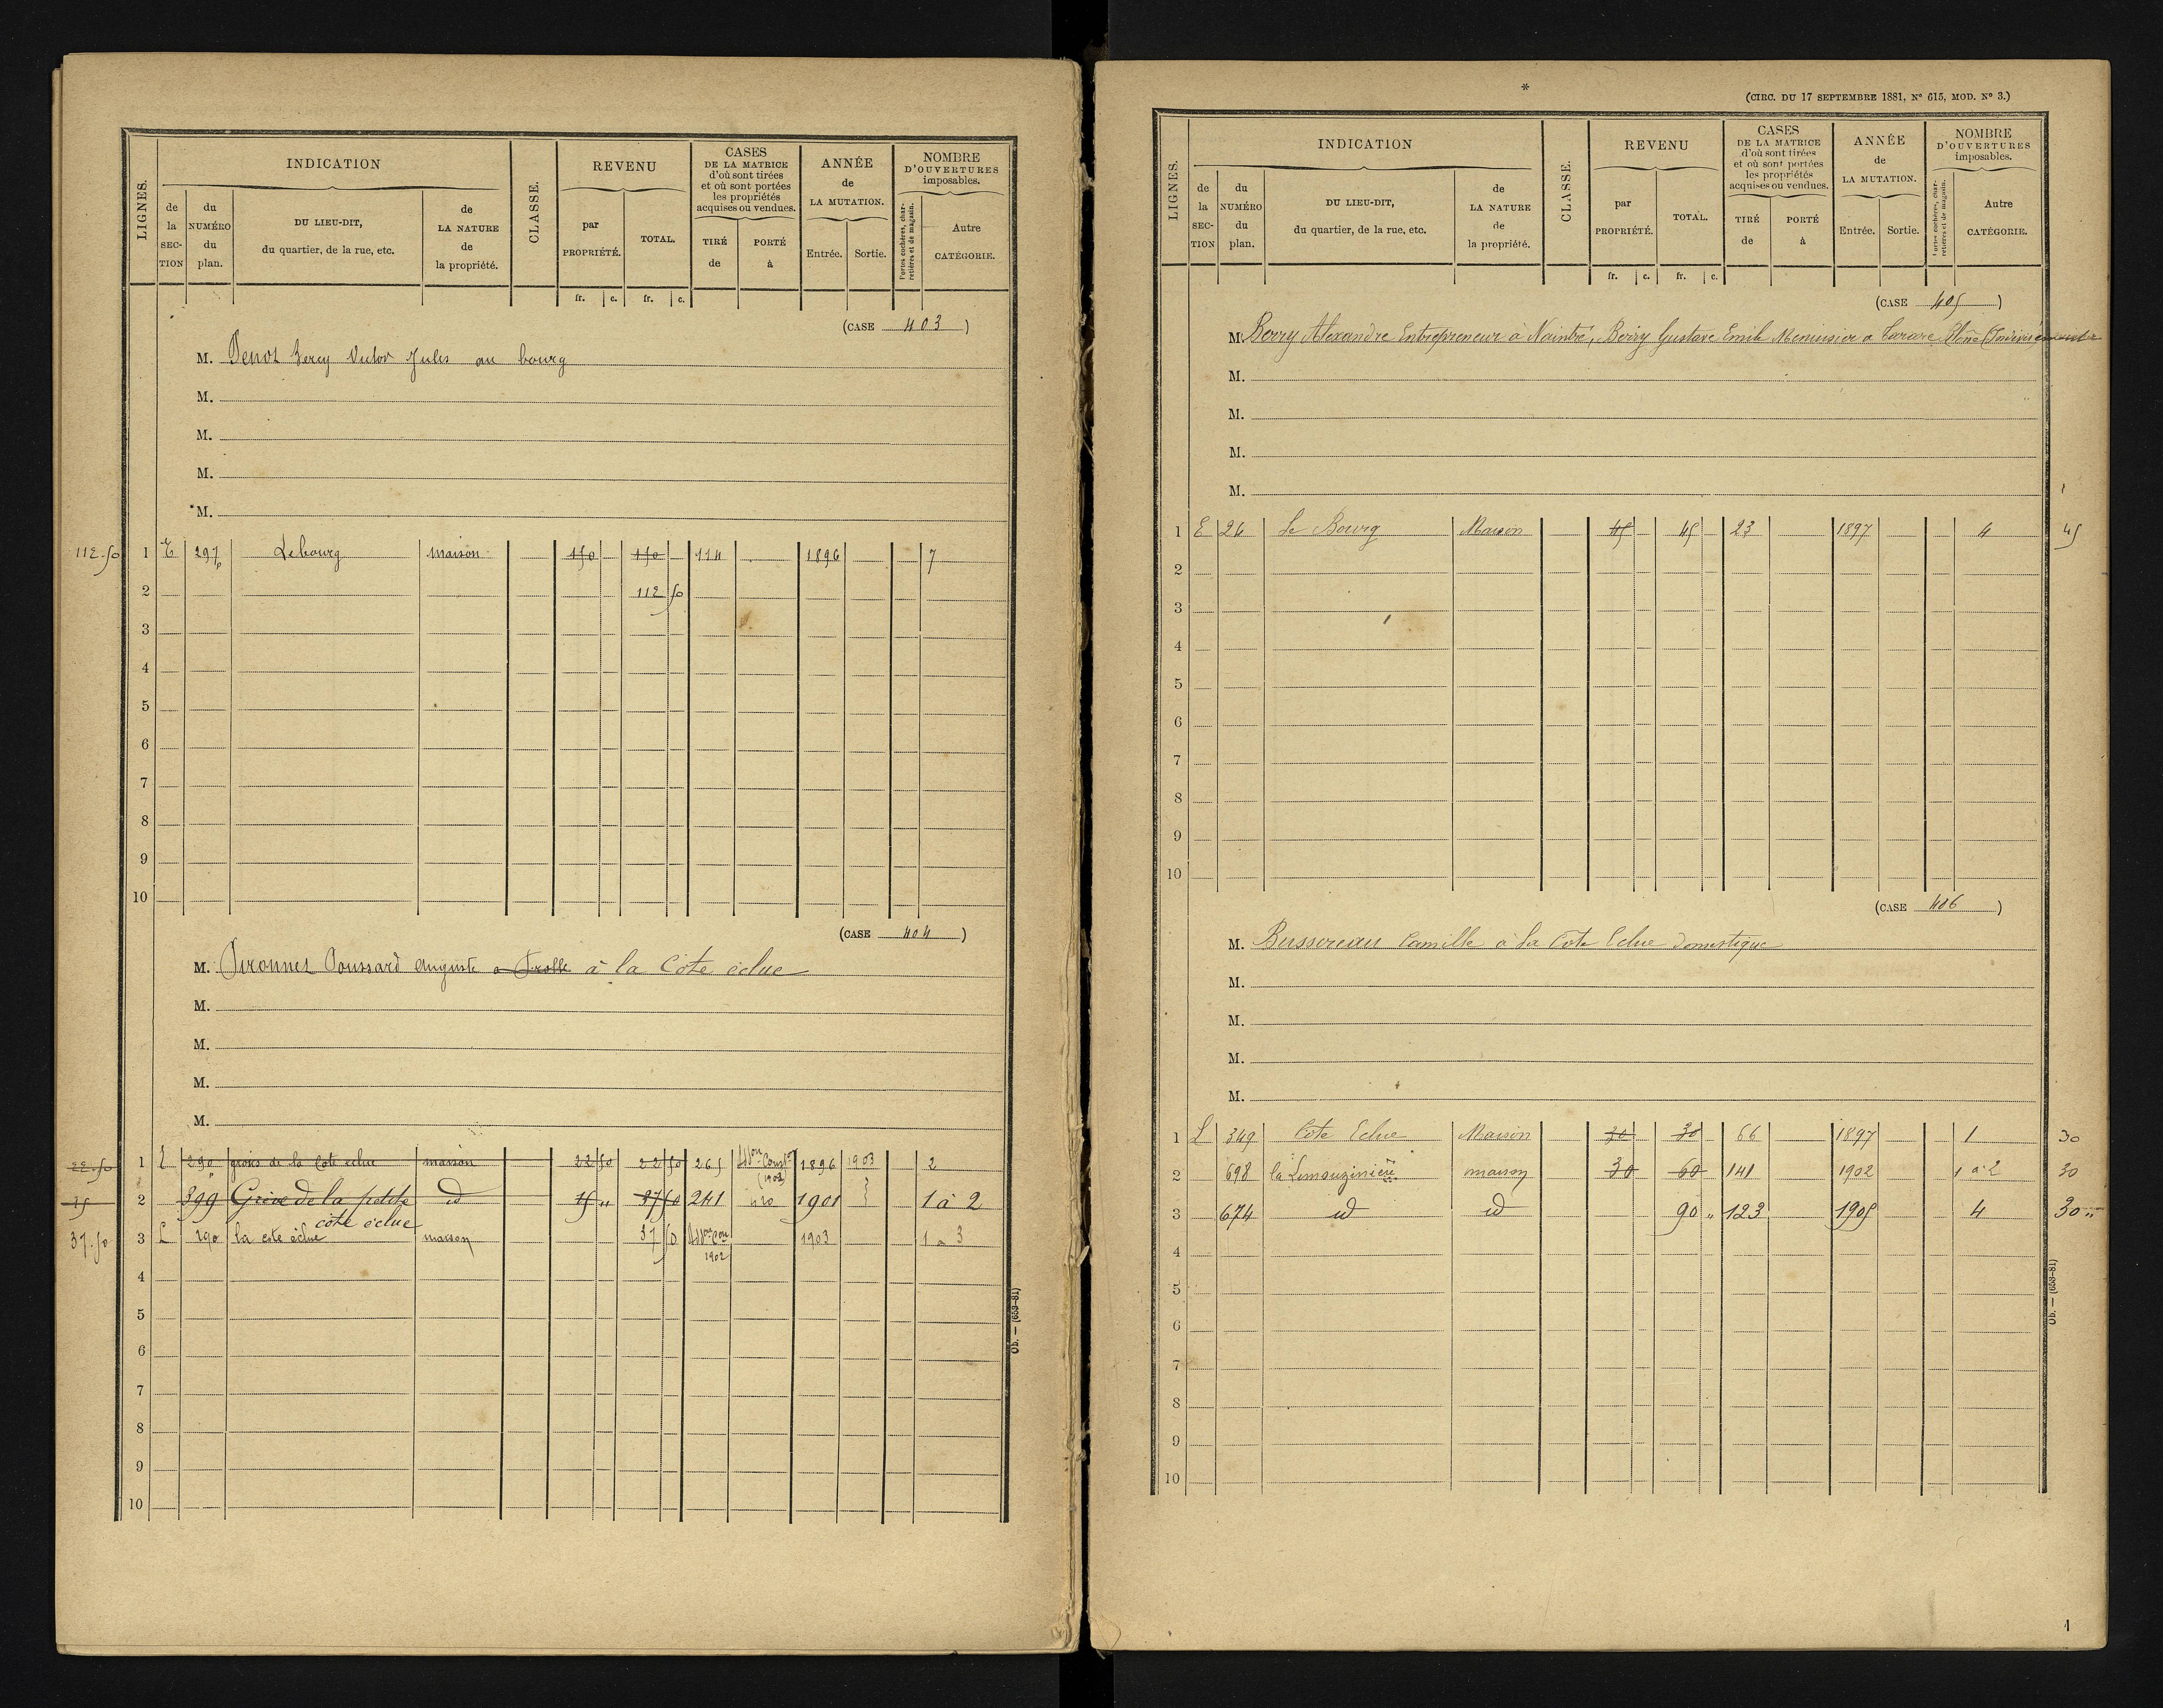 LIGNES.
INDICATION
de la SECTION
du NUMÉRO du plan.
DU LIEU-DIT, du quartier, de la rue, etc.
de LA NATURE de la propriété.
CLASSE.
REVENU
par PROPRIÉTÉ.
TOTAL.
fr. c. fr. c.
CASES DE LA MATRICE d'où sont tirées et où sont portées les propriétés acquises ou vendues.
TIRÉ de
PORTÉ à
ANNÉE de LA MUTATION.
Entrée. Sortie.
NOMBRE D'OUVERTURES imposables.
Portes cochères, charretières et de magasin.
Autre CATÉGORIE.
(CASE 403)
M. Penot Victor Jules au bourg
M.
M.
M.
M.
112.50 1 E 297p Le bourg maison 150 150 114 1896 7
2 112 50
3
4
5
6
7
8
9
10
(CASE 404)
M. Pironnet Poussard Auguste à la Côte éclue
M.
M.
M.
M.
22.50 1 290 de la Cote eclue maison 22 50 22 50 265 (1902) 1896 1903 2
15 2 399 Grive de la petite côte éclue id 15 " 37 50 241 1901 1 à 2
37.50 3 L 290 la cote éclue maison 37 50 1902 1903 1 à 3
4
5
6
7
8
9
10
Ob. — (653-81)
(CIRC. DU 17 SEPTEMBRE 1881, Nº 615, MOD. Nº 3.)
LIGNES.
INDICATION
de la SECTION
du NUMÉRO du plan.
DU LIEU-DIT, du quartier, de la rue, etc.
de LA NATURE de la propriété.
CLASSE.
REVENU
par PROPRIÉTÉ.
TOTAL.
fr. c. fr. c.
CASES DE LA MATRICE d'où sont tirées et où sont portées les propriétés acquises ou vendues.
TIRÉ de
PORTÉ à
ANNÉE de LA MUTATION.
Entrée. Sortie.
NOMBRE D'OUVERTURES imposables.
Portes cochères, charretières et de magasin.
Autre CATÉGORIE.
(CASE 405)
M. Berry Alexandre Entrepreneur à Naintré, Berry Gustave Emile Menuisier a Tarare Rhône (Indivisément
M.
M.
M.
M.
1 E 24 Le Bourg Maison 45 45 23 1897 4 45
2
3
4
5
6
7
8
9
10
(CASE 406)
M. Bussereau Camille à la Cote Eclue domestique
M.
M.
M.
M.
1 L 349 Côte Eclue Maison 30 30 66 1897 1 30
2 698 la Limouzinière maison 30 60 141 1902 1 à 2 30
3 674 id id 90 " 123 1905 4 30 "
4
5
6
7
8
9
10
Ob. — (653-81)
1